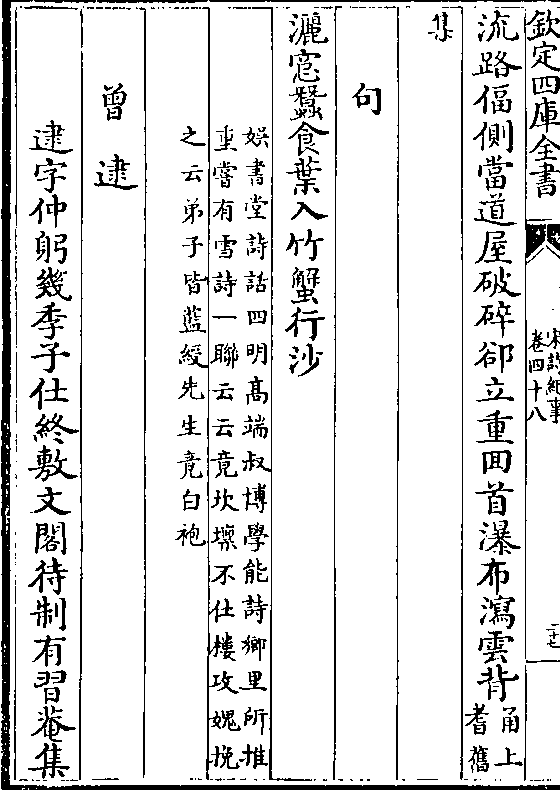 欽定四庫全書
宋詩紀事
卷四十八
二十七
流路偪側當道屋破碎郤立重回首瀑布瀉雲背甬上
耆舊
集
句
灑窓蠶食葉入竹蟹行沙
娛書堂詩話四明髙端叔博學能詩鄉里所推
重嘗有雪詩一聯云云竟坎壈不仕樓攻媿挽
之云弟子皆藍綬先生竟白袍
曾逮
逮字仲躬幾季子仕終敷文閣待制有習菴集